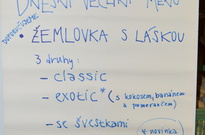 DNEŠNÍ VEČERNÍ MENU
DOPORUČUJEME
• ŽEMLOVKA S LÁSKOU
3 druhy:
- classic
- exotic * (s kokosem, banánem a pomerančem)
- se švestkami
* novinka